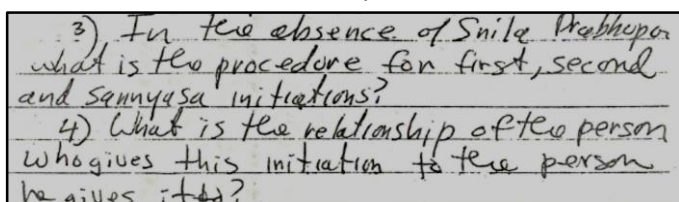 3) In the absence of Srila Prabhupa
what is the procedure for first, second
and sannyasa initiations?
4) What is the relationship of the person
who gives this initiation to the person
he gives it to?